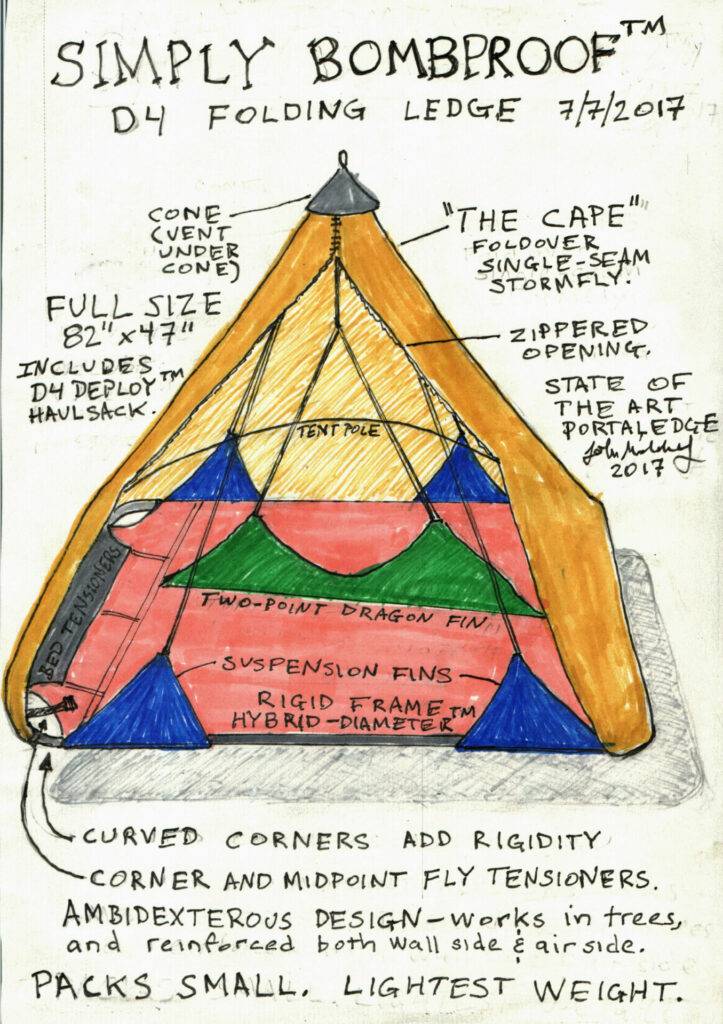 SIMPLY BOMBPROOF™
D4 FOLDING LEDGE 7/7/2017
CONE
(VENT
UNDER
CONE)
"THE CAPE"
FOLDOVER
SINGLE-SEAM
STORMFLY.
FULL SIZE
82" x 47"
INCLUDES
D4 DEPLOY™
HAULSACK.
ZIPPERED
OPENING.
STATE OF
THE ART
PORTALEDGE
2017
TENT POLE
BED TENSIONERS
TWO-POINT DRAGON FIN
SUSPENSION FINS
RIGID FRAME™
HYBRID-DIAMETER
CURVED CORNERS ADD RIGIDITY
CORNER AND MIDPOINT FLY TENSIONERS.
AMBIDEXTEROUS DESIGN - works in trees,
and reinforced both wall side & air side.
PACKS SMALL. LIGHTEST WEIGHT.